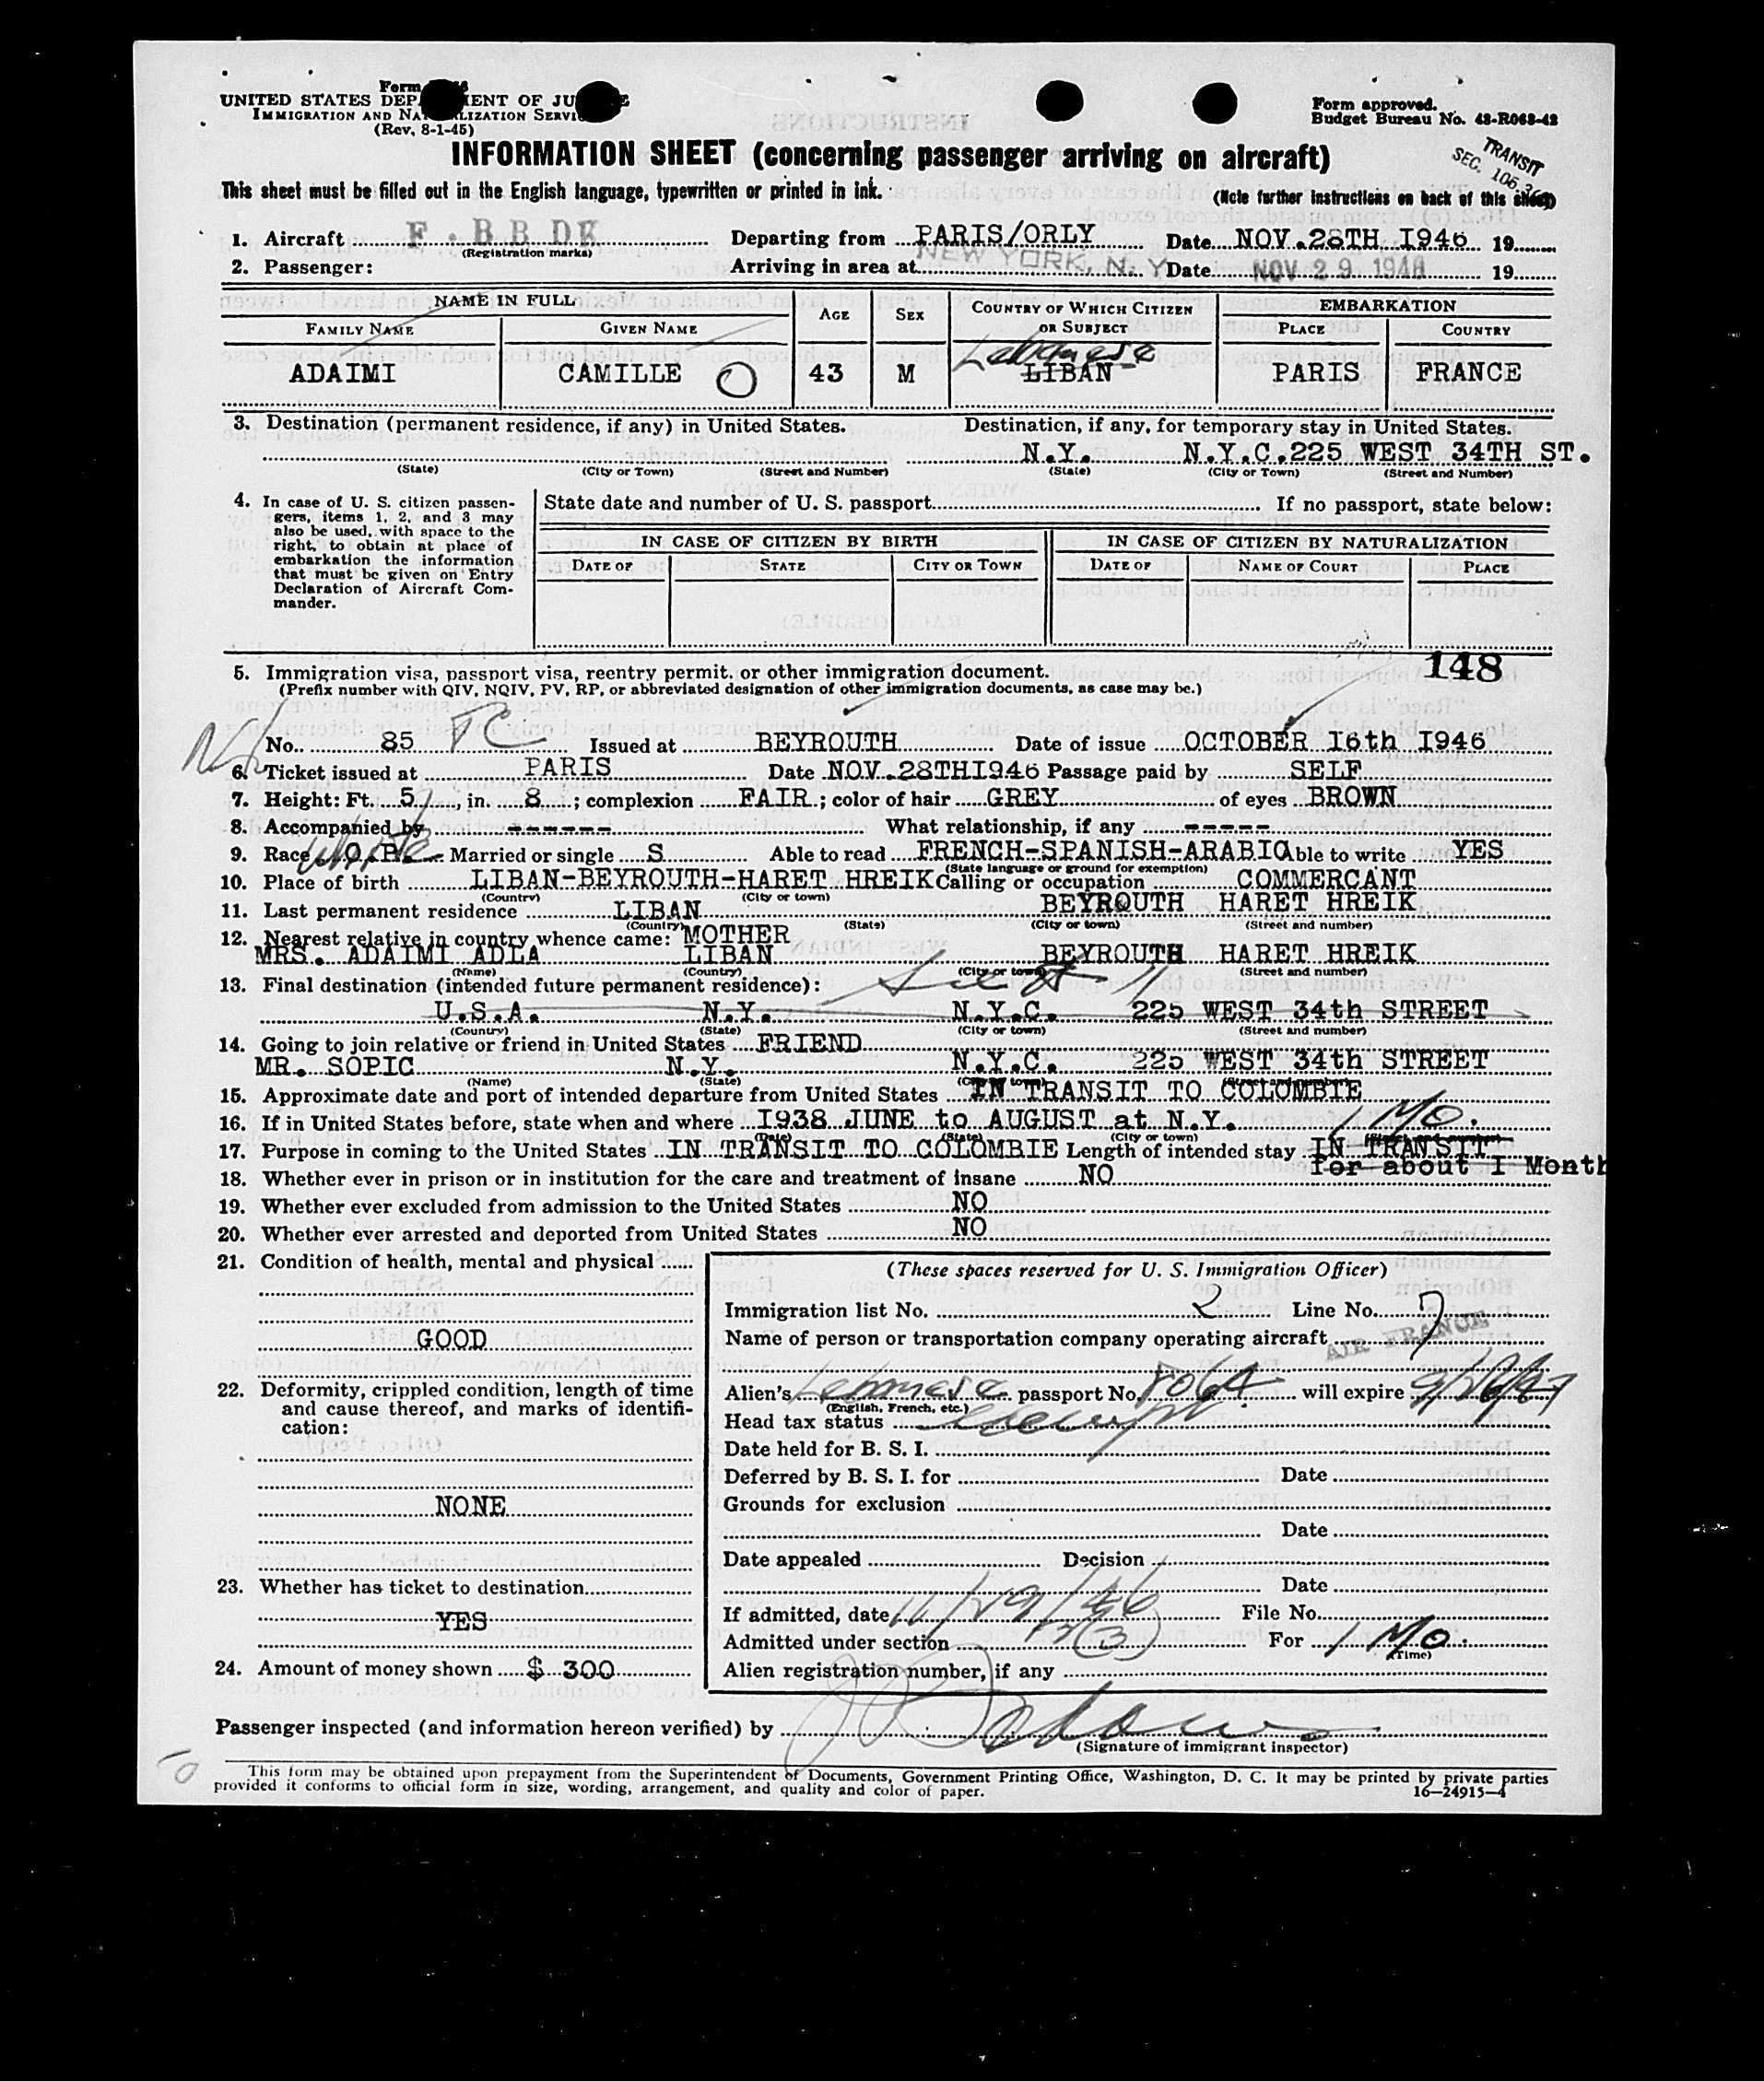 Form
UNITED STATES DEPARTMENT OF JUSTICE
IMMIGRATION AND NATURALIZATION SERVICE
(Rev. 8-1-45)
Form approved.
Budget Bureau No. 43-R068-42
INFORMATION SHEET (concerning passenger arriving on aircraft)
TRANSIT
SEC. 105.3
This sheet must be filled out in the English language, typewritten or printed in ink. (Note further instructions on back of this sheet)
1. Aircraft F. BBDE Departing from PARIS/ORLY Date NOV.28TH I946 19
(Registration marks)
2. Passenger: Arriving in area at NEW YORK, N. Y. Date NOV 29 1946 19
NAME IN FULL AGE SEX COUNTRY OF WHICH CITIZEN OR SUBJECT EMBARKATION
FAMILY NAME GIVEN NAME PLACE COUNTRY
Lebanese
ADAIMI CAMILLE O 43 M LIBAN PARIS FRANCE
3. Destination (permanent residence, if any) in United States. Destination, if any, for temporary stay in United States.
N.Y. N.Y.C.225 WEST 34TH ST.
(State) (City or Town) (Street and Number) (State) (City or Town) (Street and Number)
4. In case of U. S. citizen passen-
gers, items 1, 2, and 3 may
also be used, with space to the
right, to obtain at place of
embarkation the information
that must be given on Entry
Declaration of Aircraft Com-
mander.
State date and number of U. S. passport If no passport, state below:
IN CASE OF CITIZEN BY BIRTH IN CASE OF CITIZEN BY NATURALIZATION
DATE OF STATE CITY OR TOWN DATE OF NAME OF COURT PLACE
148
5. Immigration visa, passport visa, reentry permit, or other immigration document.
(Prefix number with QIV, NQIV, PV, RP, or abbreviated designation of other immigration documents, as case may be.)
No. 85 Issued at BEYROUTH Date of issue OCTOBER I6th I946
6. Ticket issued at PARIS Date NOV.28THI946 Passage paid by SELF
7. Height: Ft. 5, in. 8; complexion FAIR; color of hair GREY of eyes BROWN
8. Accompanied by ------ What relationship, if any -----
9. Race White Married or single S Able to read FRENCH-SPANISH-ARABIC Able to write YES
(State language or ground for exemption)
10. Place of birth LIBAN-BEYROUTH-HARET HREIK Calling or occupation COMMERCANT
(Country) (City or town)
11. Last permanent residence LIBAN BEYROUTH HARET HREIK
(Country) (State) (City or town) (Street and number)
12. Nearest relative in country whence came: MOTHER
MRS. ADAIMI ADLA LIBAN BEYROUTH HARET HREIK
(Name) (Country) (City or town) (Street and number)
13. Final destination (intended future permanent residence):
U.S.A. N.Y. N.Y.C. 225 WEST 34th STREET
(Country) (State) (City or town) (Street and number)
14. Going to join relative or friend in United States FRIEND
MR. SOPIC N.Y. N.Y.C. 225 WEST 34th STREET
(Name) (State) (City or town) (Street and number)
15. Approximate date and port of intended departure from United States IN TRANSIT TO COLOMBIE
16. If in United States before, state when and where I938 JUNE to AUGUST at N.Y. 1 Mo.
(Date) (State) (City or town) (Street and number)
17. Purpose in coming to the United States IN TRANSIT TO COLOMBIE Length of intended stay IN TRANSIT
for about I Month
18. Whether ever in prison or in institution for the care and treatment of insane NO
19. Whether ever excluded from admission to the United States NO
20. Whether ever arrested and deported from United States NO
21. Condition of health, mental and physical
GOOD
22. Deformity, crippled condition, length of time
and cause thereof, and marks of identifi-
cation:
NONE
23. Whether has ticket to destination
YES
24. Amount of money shown $ 300
(These spaces reserved for U. S. Immigration Officer)
Immigration list No. 2 Line No. 7
Name of person or transportation company operating aircraft AIR FRANCE
Alien's Lebanese passport No. will expire
(English, French, etc.)
Head tax status
Date held for B. S. I.
Deferred by B. S. I. for Date
Grounds for exclusion
Date
Date appealed Decision
Date
If admitted, date 11/29/46 File No.
Admitted under section 3(3) For 1 Mo.
(Time)
Alien registration number, if any
Passenger inspected (and information hereon verified) by
(Signature of immigrant inspector)
This form may be obtained upon prepayment from the Superintendent of Documents, Government Printing Office, Washington, D. C. It may be printed by private parties
provided it conforms to official form in size, wording, arrangement, and quality and color of paper. 16—24915-4